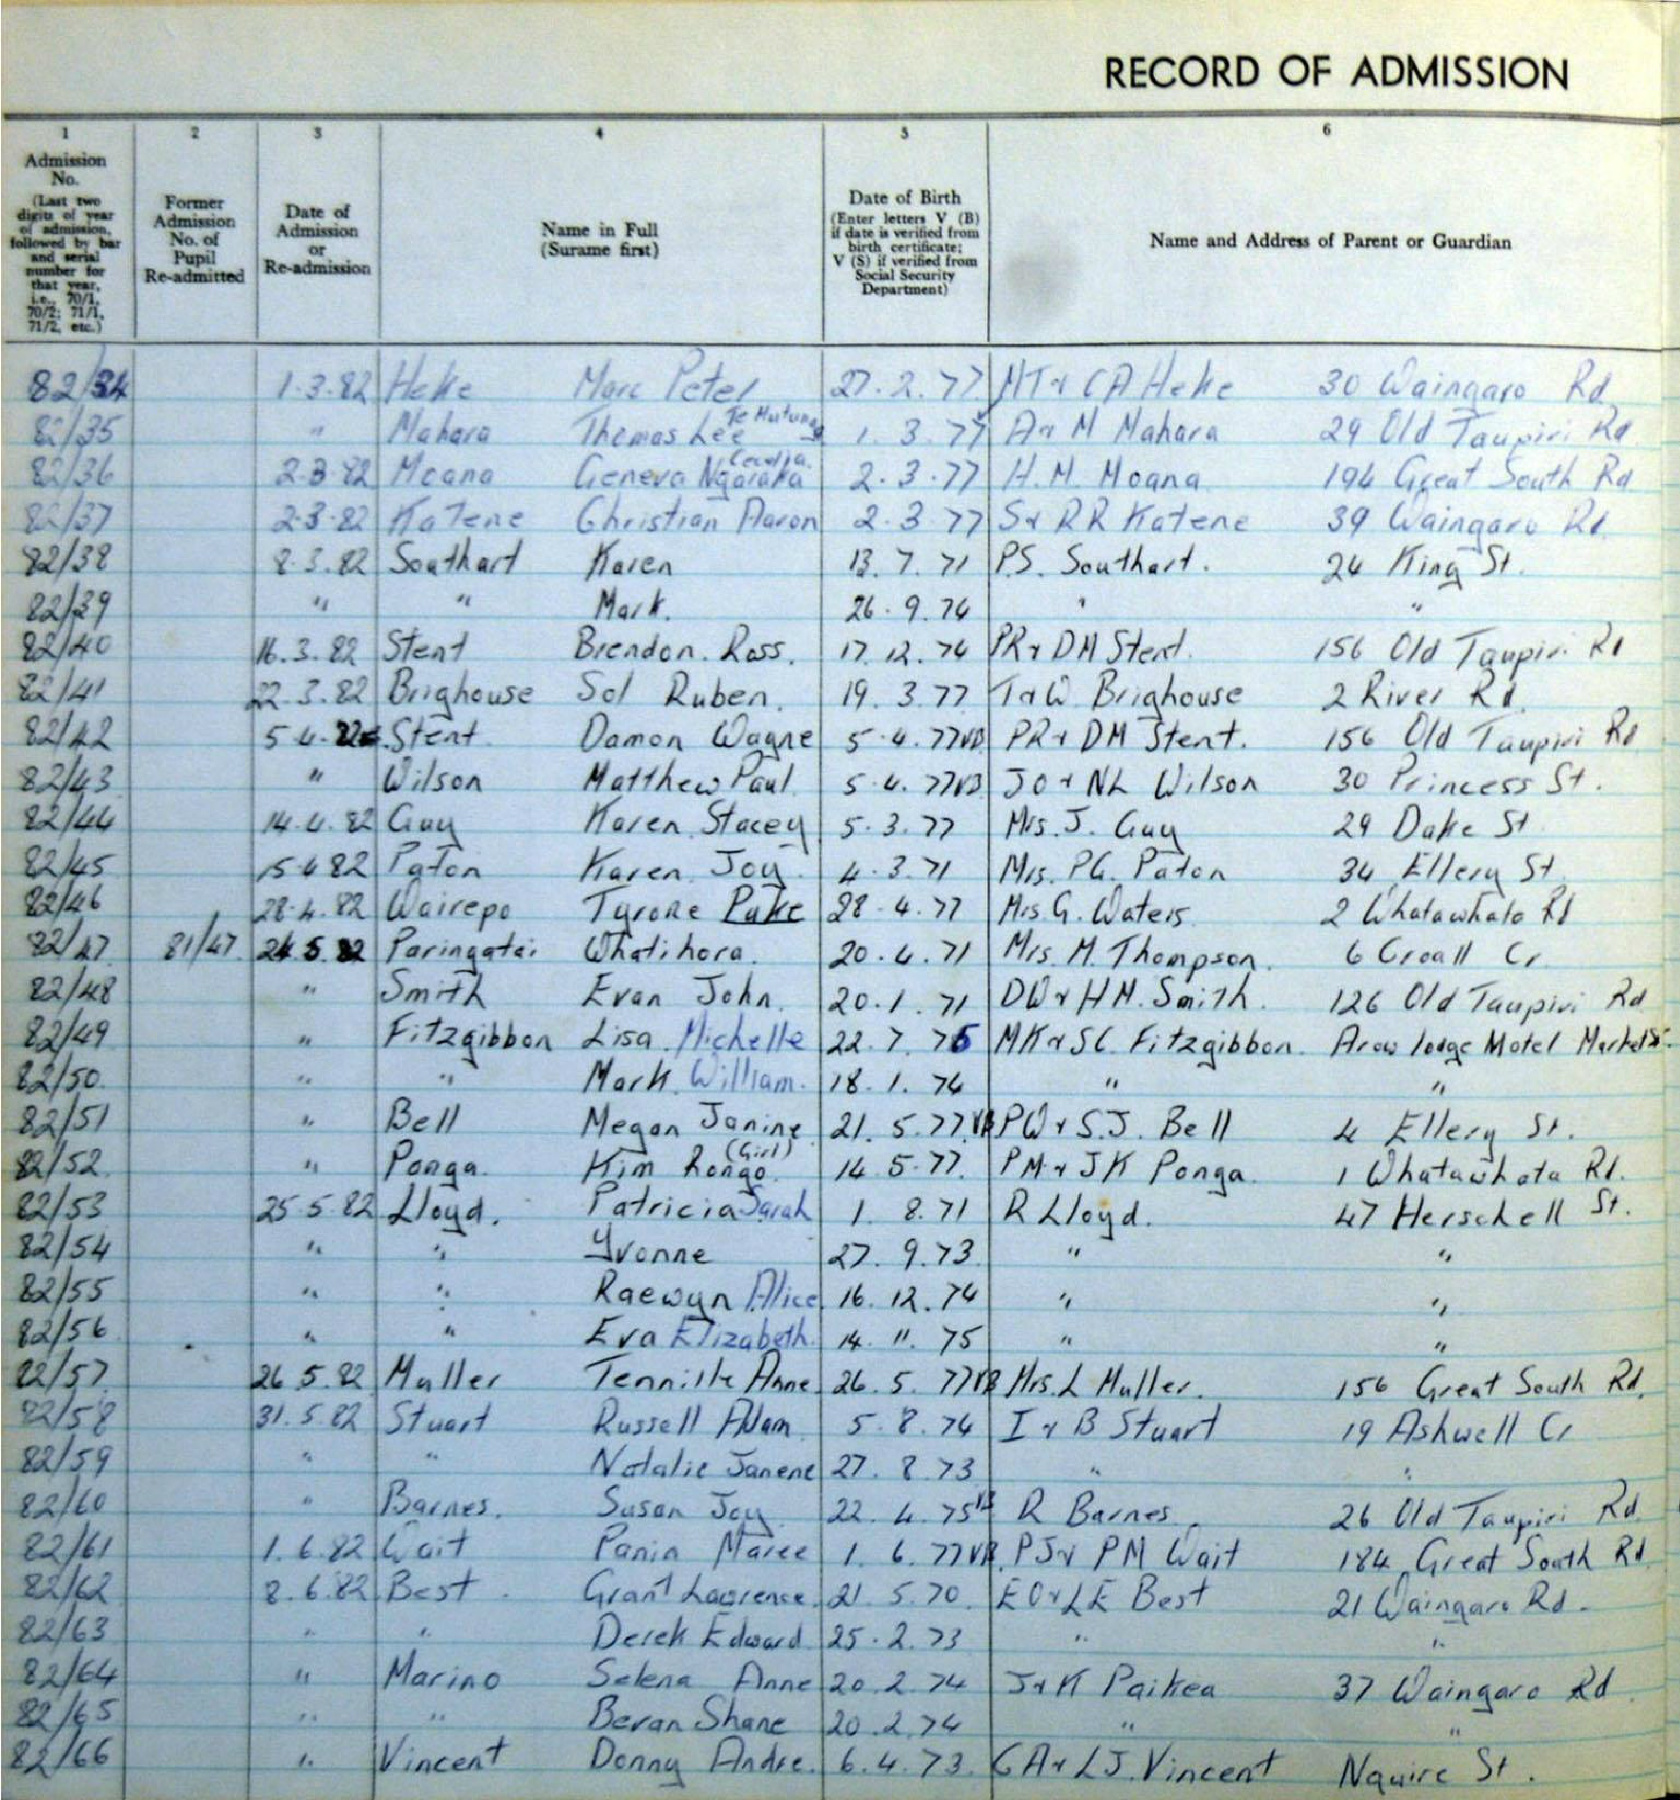 RECORD OF ADMISSION
1 2 3 4 5 6
Admission No. (Last two digits of year of admission, followed by bar and serial number for that year, i.e., 70/1, 70/2; 71/1, 71/2, etc.)
Former Admission No. of Pupil Re-admitted
Date of Admission or Re-admission
Name in Full (Surame first)
Date of Birth (Enter letters V (B) if date is verified from birth certificate; V (S) if verified from Social Security Department)
Name and Address of Parent or Guardian
82/34 1.3.82 Heke Marc Peter 27.2.77 MT & CA Heke 30 Waingaro Rd
82/35 " Mahara Thomas Lee 1.3.77 A & M Mahara 29 Old Taupiri Rd
82/36 2.3.82 Moana Geneva Ngaraka Cecelia 2.3.77 H.M. Moana 194 Great South Rd
82/37 2.3.82 Katene Christian Aaron 2.3.77 S & RR Katene 39 Waingaro Rd
82/38 8.3.82 Southart Karen 13.7.71 P.S. Southart. 24 King St.
82/39 " " Mark. 26.9.74 " "
82/40 16.3.82 Stent Brendon. Ross. 17.12.74 PR & DM Stent. 156 Old Taupiri Rd
82/41 22.3.82 Brighouse Sol Ruben. 19.3.77 T & W Brighouse 2 River Rd.
82/42 5.4.82 Stent Damon Wayne 5.4.77 VB PR & DM Stent. 156 Old Taupiri Rd
82/43 " Wilson Matthew Paul 5.4.77 VB JO & NL Wilson 30 Princess St.
82/44 14.4.82 Guy Karen Stacey 5.3.77 Mrs. J. Guy 29 Duke St
82/45 15.4.82 Paton Karen Joy 4.3.71 Mrs. PG. Paton 34 Ellery St
82/46 28.4.82 Wairepo Tyrone Puke 28.4.77 Mrs G. Waters 2 Whatawhata Rd
82/47 81/47 24.5.82 Paringatai Whatihora. 20.4.71 Mrs. M. Thompson. 6 Croall Cr
82/48 " Smith Evan John. 20.1.71 DW & HM. Smith. 126 Old Taupiri Rd
82/49 " Fitzgibbon Lisa Michelle 22.7.75 MK & SC Fitzgibbon. Arow lodge Motel
82/50 " " Mark William. 18.1.74 " "
82/51 " Bell Megan Janine 21.5.77 VB PW & S.J. Bell 4 Ellery St.
82/52 " Ponga. Kim Rongo (Girl) 14.5.77. PM & JK Ponga 1 Whatawhata Rd.
82/53 25.5.82 Lloyd. Patricia Sarah 1.8.71 R Lloyd. 47 Herschell St.
82/54 " " Yvonne 27.9.73 " "
82/55 " " Raewyn Alice 16.12.74 " "
82/56 " " Eva Elizabeth. 14.11.75 " "
82/57 26.5.82 Muller Tennille Anne 26.5.77 VB Mrs. L Muller. 156 Great South Rd.
82/58 31.5.82 Stuart Russell Adam 5.8.74 I & B Stuart 19 Ashwell Cr
82/59 " " Natalie Janene 27.8.73 " "
82/60 " Barnes. Susan Joy 22.4.75 VB R Barnes. 26 Old Taupiri Rd.
82/61 1.6.82 Wait Panin Maree 1.6.77 VB PJ & PM Wait 184 Great South Rd
82/62 8.6.82 Best Grant Lawrence 21.5.70 EO & LE Best 21 Waingaro Rd.
82/63 " " Derek Edward 25.2.73 " "
82/64 " Marino Selena Anne 20.2.74 J & K Paikea 37 Waingaro Rd.
82/65 " " Bevan Shane 20.2.74 " "
82/66 " Vincent Donny Andre. 6.4.73. GA & LJ. Vincent Nquire St.